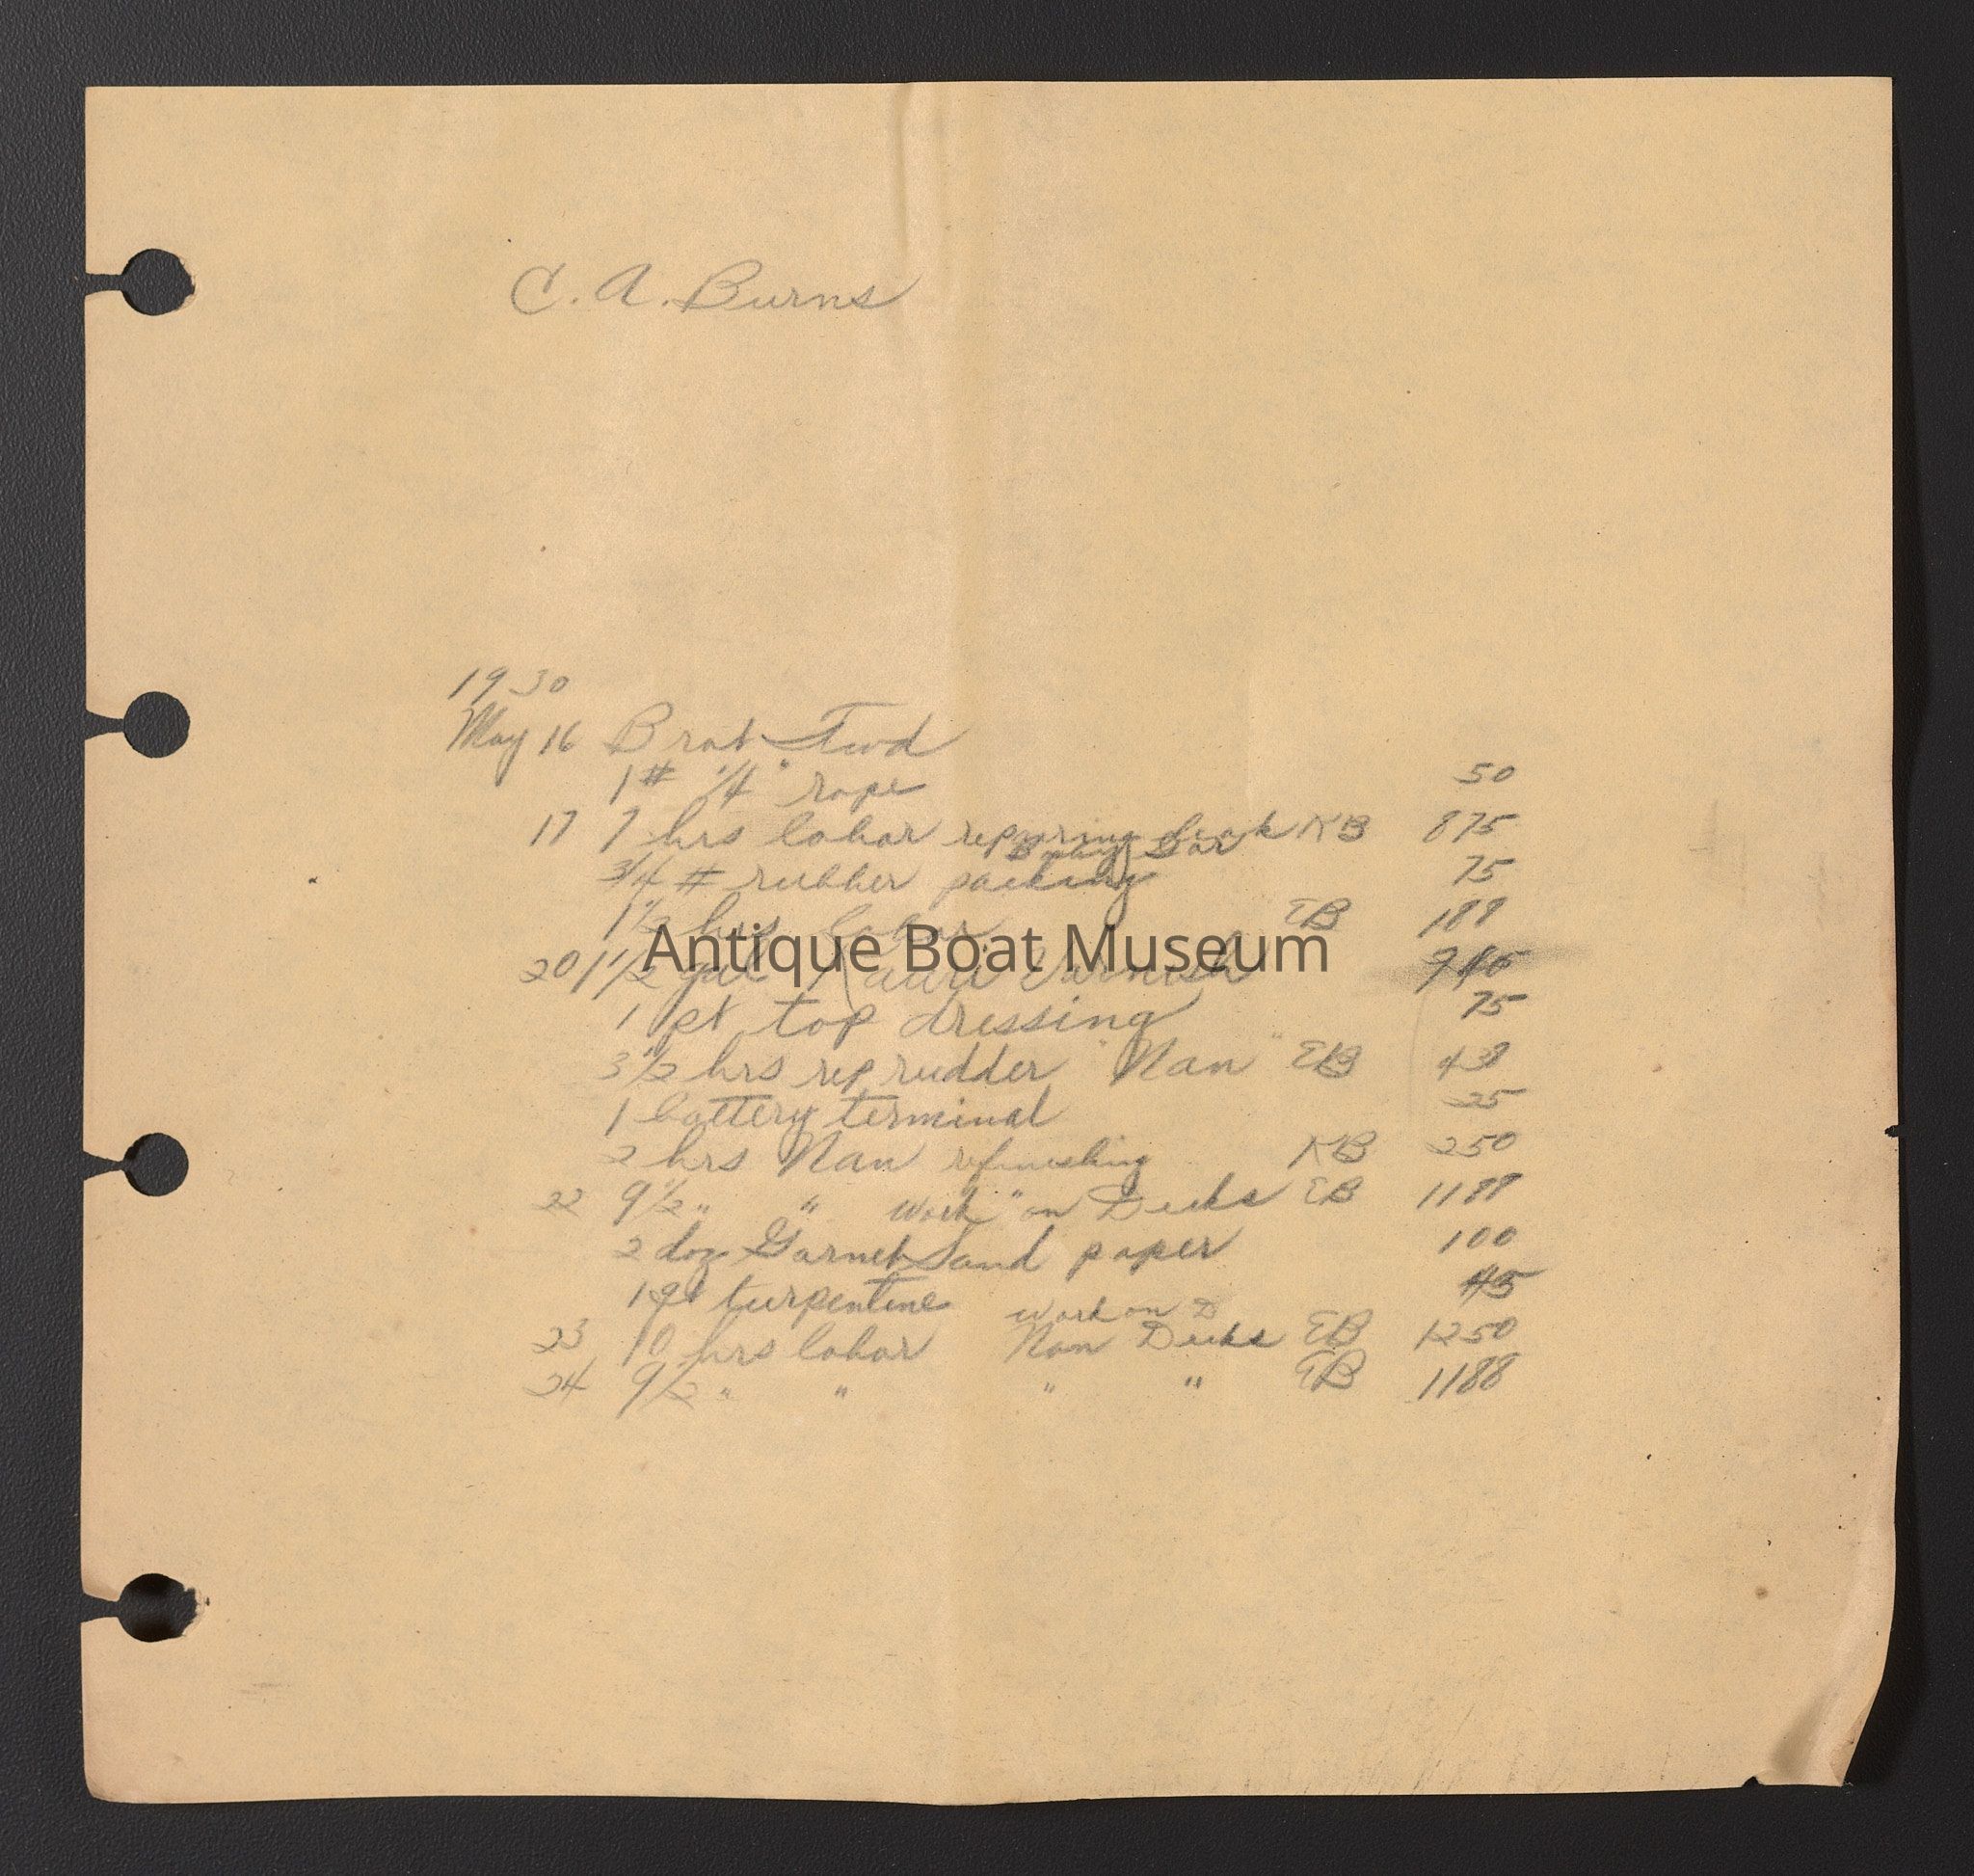 C. A. Burns
1930
May 16 Brat Fwd
1 # 1/4" rope 50
17 7 hrs labor repairing KB 875
Boring Bar
3/4 # rubber packing 75
1 1/2 hrs labor EB 188
Antique Boat Museum
20 1 1/2 gal Kauri Varnish
1 pt top dressing 75
3 1/2 hrs rep rudder "Nan" EB 438
1 battery terminal 25
2 hrs Nan refinishing KB 250
22 9 1/2 " " work " on Decks EB 1188
2 doz Garnet Sand paper 100
1 qt turpentine 45
work on D
23 10 hrs labor Nan Decks EB 1250
24 9 1/2 " " " " EB 1188